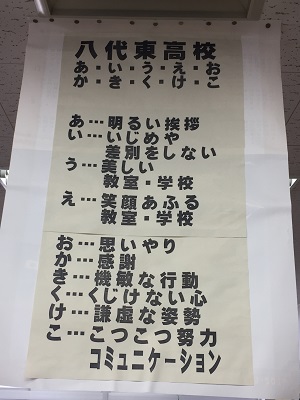 八代東高校
あ・い・う・え・お
か・き・く・け・こ
あ…明るい挨拶
い…いじめや
差別をしない
う…美しい
教室・学校
え…笑顔あふる
教室・学校
お…思いやり
か…感謝
き…機敏な行動
く…くじけない心
け…謙虚な姿勢
こ…こつこつ努力
コミュニケーション